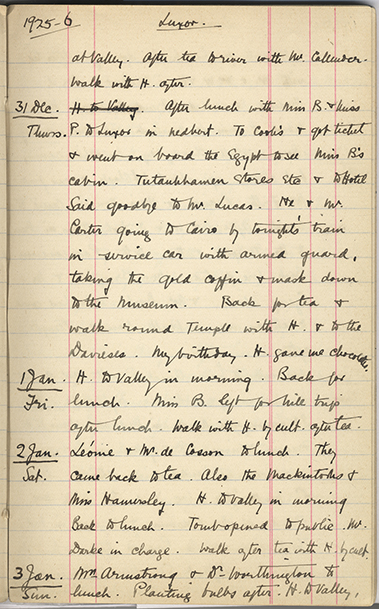 1925-6 Luxor.
at Valley. After tea to river with Mr. Callender.
walk with H. after.
31 Dec. H. to Valley. After lunch with Miss B. & Miss
Thurs. P. to Luxor in . To Cook's & got ticket
& went on board the Egypt to see Miss B's
cabin. Tutankhamen Stores etc & to Hotel
Said goodbye to Mr. Lucas. He & Mr.
Carter going to Cairo by tonight's train
in service car with armed guard,
taking the gold coffin & mask down
to the Museum. Back for tea &
walk round Temple with H. & to the
Davieses. My birthday. H. gave me chocolate.
1 Jan. H. to Valley in morning. Back for
Fri. lunch. Miss B. left for hill trip
after lunch. Walk with H. by cult. after tea.
2 Jan. Léonie & Mr. de Cosson to lunch. They
Sat. came back to tea. Also the Mackintoshs &
Miss Hamersley. H. to Valley in morning
back to lunch. Tomb opened to public. Mr.
in charge. Walk after tea with H. by cult.
3 Jan. Mrs Armstrong & Dr. Worthington to
Sun. lunch. Planting bulbs after. H. to Valley,